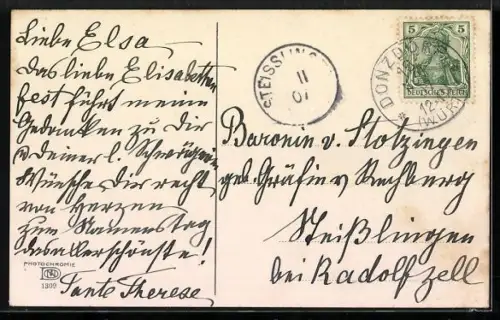 Liebe Elsa
das liebe Elisabethen
fest führt meine
Gedanken zu Dir
u deiner l. Schwägerin
Wünsche Dir recht
von Herzen
zum Namenstag
das allerschönste!
Tante Therese
PHOTOCHROMIE
1309
STEISSLINGEN
11
07
5 5
DEUTSCHES REICH
DONZDORF
12
(WÜRT
Baronin v. Stotzingen
geb. Gräfin v Rechberg
Steißlingen
bei Radolfzell